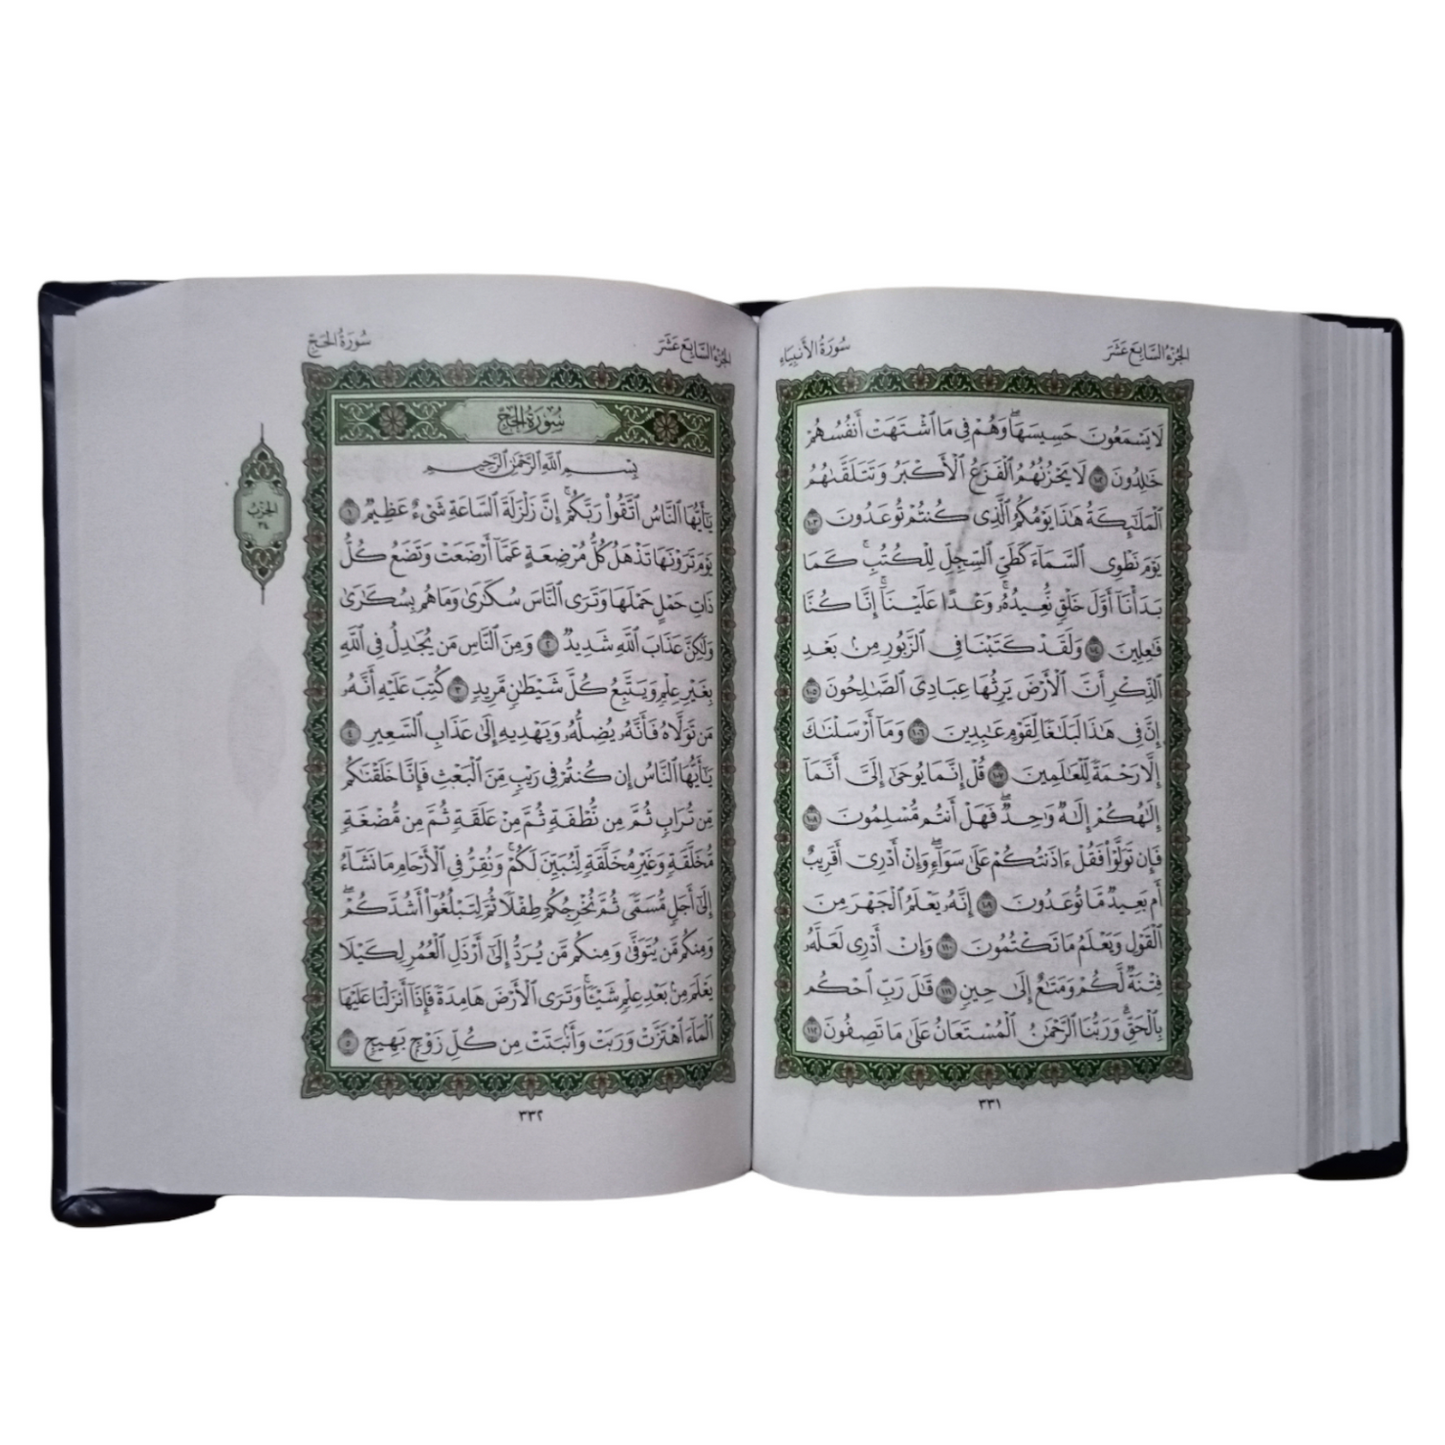 الجزء السابع عشر
سورة الأنبياء
لَا يَسْمَعُونَ حَسِيسَهَا ۖ وَهُمْ فِى مَا ٱشْتَهَتْ أَنفُسُهُمْ
خَـٰلِدُونَ ١٠٢ لَا يَحْزُنُهُمُ ٱلْفَزَعُ ٱلْأَكْبَرُ وَتَتَلَقَّىٰهُمُ
ٱلْمَلَـٰٓئِكَةُ هَـٰذَا يَوْمُكُمُ ٱلَّذِى كُنتُمْ تُوعَدُونَ ١٠٣
يَوْمَ نَطْوِى ٱلسَّمَآءَ كَطَىِّ ٱلسِّجِلِّ لِلْكُتُبِ ۚ كَمَا
بَدَأْنَآ أَوَّلَ خَلْقٍ نُّعِيدُهُۥ ۚ وَعْدًا عَلَيْنَآ ۚ إِنَّا كُنَّا
فَـٰعِلِينَ ١٠٤ وَلَقَدْ كَتَبْنَا فِى ٱلزَّبُورِ مِنۢ بَعْدِ
ٱلذِّكْرِ أَنَّ ٱلْأَرْضَ يَرِثُهَا عِبَادِىَ ٱلصَّـٰلِحُونَ ١٠٥
إِنَّ فِى هَـٰذَا لَبَلَـٰغًا لِّقَوْمٍ عَـٰبِدِينَ ١٠٦ وَمَآ أَرْسَلْنَـٰكَ
إِلَّا رَحْمَةً لِّلْعَـٰلَمِينَ ١٠٧ قُلْ إِنَّمَا يُوحَىٰٓ إِلَىَّ أَنَّمَآ
إِلَـٰهُكُمْ إِلَـٰهٌ وَٰحِدٌ ۖ فَهَلْ أَنتُم مُّسْلِمُونَ ١٠٨
فَإِن تَوَلَّوْا۟ فَقُلْ ءَاذَنتُكُمْ عَلَىٰ سَوَآءٍ ۖ وَإِنْ أَدْرِىٓ أَقَرِيبٌ
أَم بَعِيدٌ مَّا تُوعَدُونَ ١٠٩ إِنَّهُۥ يَعْلَمُ ٱلْجَهْرَ مِنَ
ٱلْقَوْلِ وَيَعْلَمُ مَا تَكْتُمُونَ ١١٠ وَإِنْ أَدْرِى لَعَلَّهُۥ
فِتْنَةٌ لَّكُمْ وَمَتَـٰعٌ إِلَىٰ حِينٍ ١١١ قَـٰلَ رَبِّ ٱحْكُم
بِٱلْحَقِّ ۗ وَرَبُّنَا ٱلرَّحْمَـٰنُ ٱلْمُسْتَعَانُ عَلَىٰ مَا تَصِفُونَ ١١٢
٣٣١
الجزء السابع عشر
سورة الحج
سورة الحج
بِسْمِ ٱللَّهِ ٱلرَّحْمَـٰنِ ٱلرَّحِيمِ
يَـٰٓأَيُّهَا ٱلنَّاسُ ٱتَّقُوا۟ رَبَّكُمْ ۚ إِنَّ زَلْزَلَةَ ٱلسَّاعَةِ شَىْءٌ عَظِيمٌ ١
يَوْمَ تَرَوْنَهَا تَذْهَلُ كُلُّ مُرْضِعَةٍ عَمَّآ أَرْضَعَتْ وَتَضَعُ كُلُّ
ذَاتِ حَمْلٍ حَمْلَهَا وَتَرَى ٱلنَّاسَ سُكَـٰرَىٰ وَمَا هُم بِسُكَـٰرَىٰ
وَلَـٰكِنَّ عَذَابَ ٱللَّهِ شَدِيدٌ ٢ وَمِنَ ٱلنَّاسِ مَن يُجَـٰدِلُ فِى ٱللَّهِ
بِغَيْرِ عِلْمٍ وَيَتَّبِعُ كُلَّ شَيْطَـٰنٍ مَّرِيدٍ ٣ كُتِبَ عَلَيْهِ أَنَّهُۥ
مَن تَوَلَّاهُ فَأَنَّهُۥ يُضِلُّهُۥ وَيَهْدِيهِ إِلَىٰ عَذَابِ ٱلسَّعِيرِ ٤
يَـٰٓأَيُّهَا ٱلنَّاسُ إِن كُنتُمْ فِى رَيْبٍ مِّنَ ٱلْبَعْثِ فَإِنَّا خَلَقْنَـٰكُم
مِّن تُرَابٍ ثُمَّ مِن نُّطْفَةٍ ثُمَّ مِنْ عَلَقَةٍ ثُمَّ مِن مُّضْغَةٍ
مُّخَلَّقَةٍ وَغَيْرِ مُخَلَّقَةٍ لِّنُبَيِّنَ لَكُمْ ۚ وَنُقِرُّ فِى ٱلْأَرْحَامِ مَا نَشَآءُ
إِلَىٰٓ أَجَلٍ مُّسَمًّى ثُمَّ نُخْرِجُكُمْ طِفْلًا ثُمَّ لِتَبْلُغُوٓا۟ أَشُدَّكُمْ ۖ
وَمِنكُم مَّن يُتَوَفَّىٰ وَمِنكُم مَّن يُرَدُّ إِلَىٰٓ أَرْذَلِ ٱلْعُمُرِ لِكَيْلَا
يَعْلَمَ مِنۢ بَعْدِ عِلْمٍ شَيْـًٔا ۚ وَتَرَى ٱلْأَرْضَ هَامِدَةً فَإِذَآ أَنزَلْنَا عَلَيْهَا
ٱلْمَآءَ ٱهْتَزَّتْ وَرَبَتْ وَأَنۢبَتَتْ مِن كُلِّ زَوْجٍۭ بَهِيجٍ ٥
الحزب
٣٤
٣٣٢